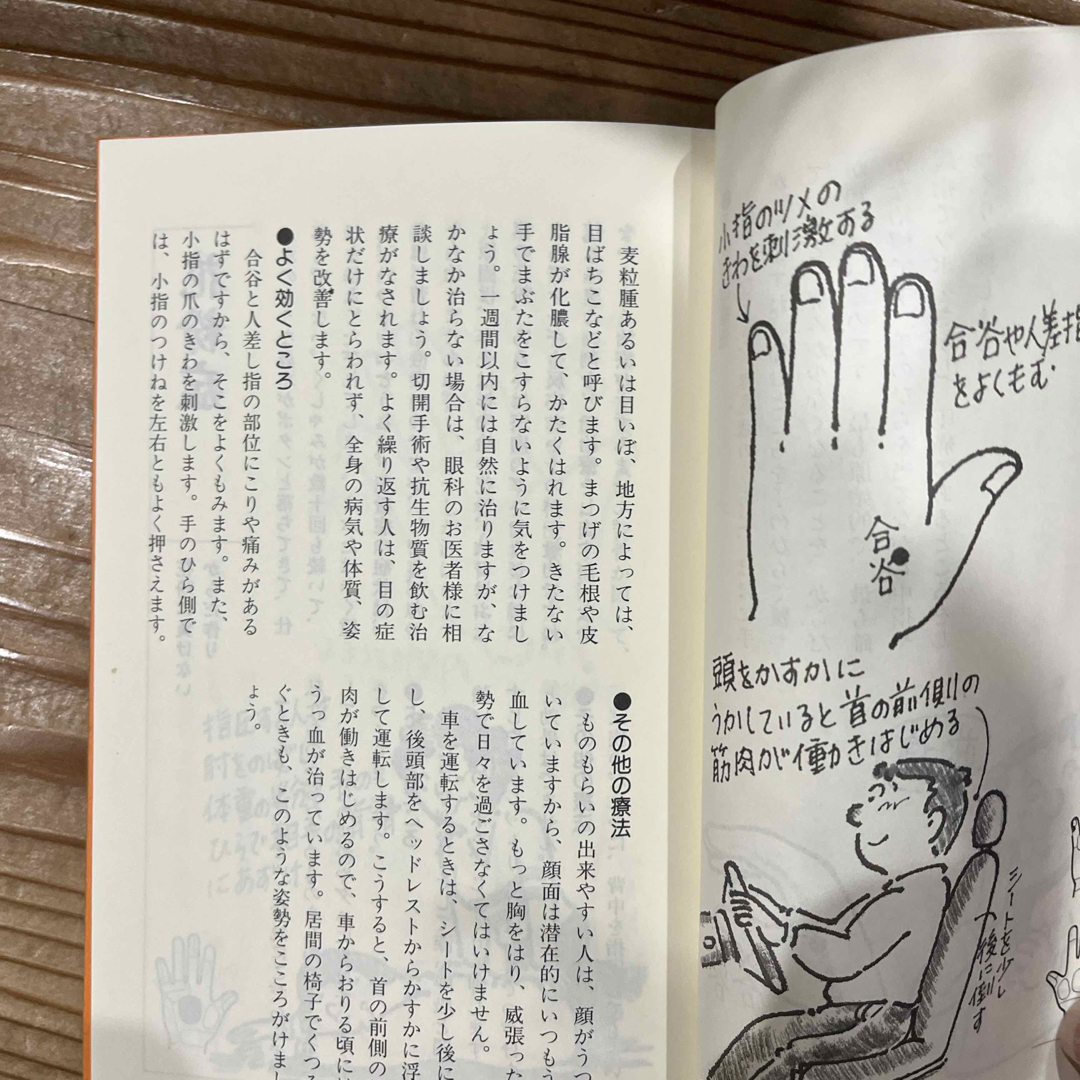 小指のツメの
きわを刺激する
合谷や人差指
をよくもむ
合谷
頭をかすかに
うかしていると首の前側の
筋肉が働きはじめる
シートを少し
後に倒す
麦粒腫あるいは目いぼ、地方によっては、
目ばちこなどと呼びます。まつげの毛根や皮
脂腺が化膿して、かたくはれます。きたない
手でまぶたをこすらないように気をつけまし
ょう。一週間以内には自然に治りますが、な
かなか治らない場合は、眼科のお医者様に相
談しましょう。切開手術や抗生物質を飲む治
療がなされます。よく繰り返す人は、目の症
状だけにとらわれず、全身の病気や体質、姿
勢を改善します。
●よく効くところ
合谷と人差し指の部位にこりや痛みがある
はずですから、そこをよくもみます。また、
小指の爪のきわを刺激します。手のひら側で
は、小指のつけねを左右ともよく押さえます。
●その他の療法
ものもらいの出来やすい人は、顔がうつ
いていますから、顔面は潜在的にいつもう
血しています。もっと胸をはり、威張った
勢で日々を過ごさなくてはいけません。
車を運転するときは、シートを少し後に
し、後頭部をヘッドレストからかすかに浮
して運転します。こうすると、首の前側の
肉が働きはじめるので、車からおりる頃には
うっ血が治っています。居間の椅子でくつろ
ぐときも、このような姿勢をこころがけまし
ょう。